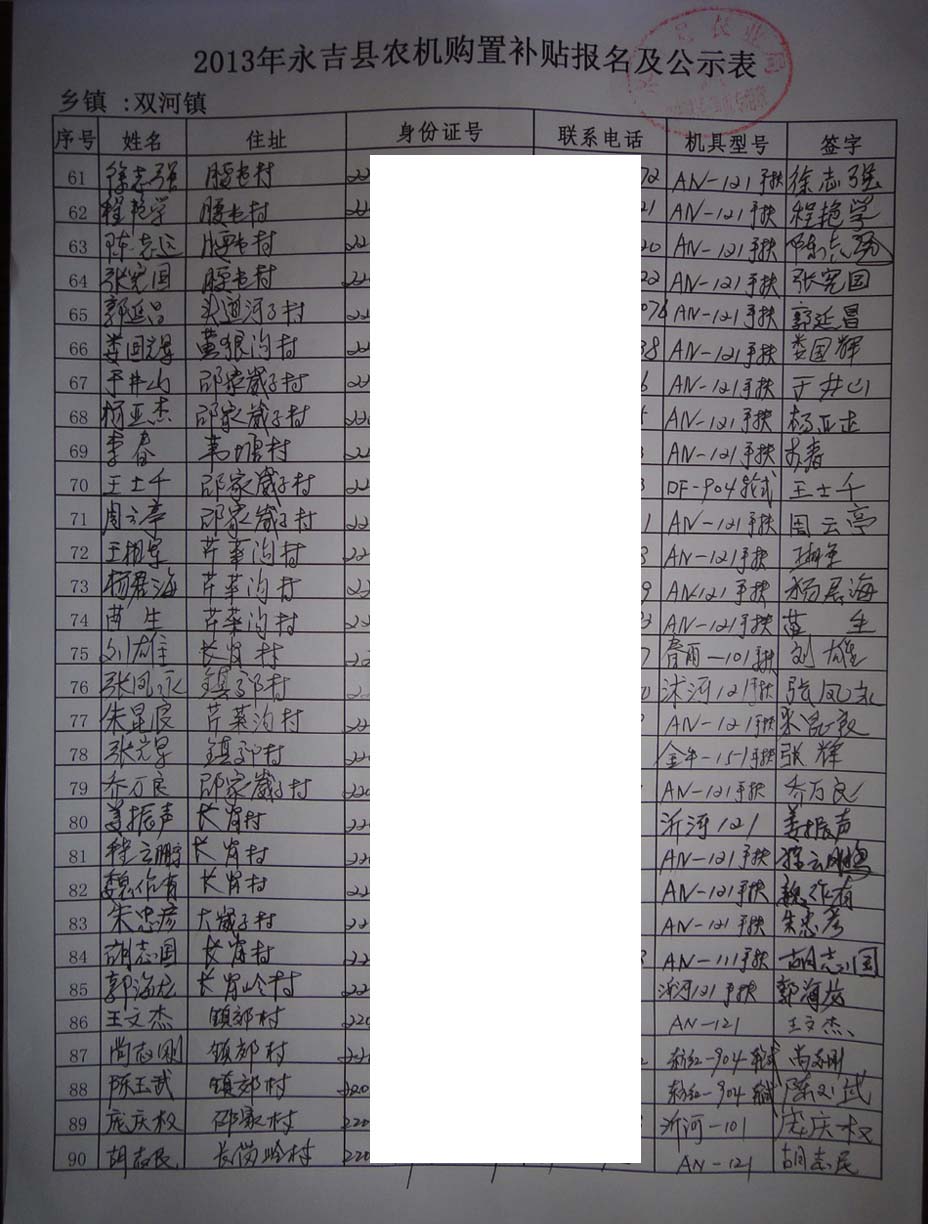 2013年永吉县农机购置补贴报名及公示表
乡镇 :双河镇
序号 姓名 住址 身份证号 联系电话 机具型号 签字
61 徐志强 腰屯村 22 72 AN-121手扶 徐志强
62 程艳学 腰屯村 22 21 AN-121手扶 程艳学
63 陈志远 腰屯村 22 20 AN-121手扶 陈志
64 张宪国 腰屯村 22 22 AN-121手扶 张宪国
65 郭延昌 头道河子村 22 076 AN-121手扶 郭延昌
66 娄国辉 黄狼沟村 22 38 AN-121手扶 娄国辉
67 于井山 邵家崴子村 22 6 AN-121手扶 于井山
68 杨亚杰 邵家崴子村 220 AN-121手扶 杨亚杰
69 李春 村 22 AN-121手扶 春
70 王士千 邵家崴子村 22 3 DF-904轮式 王士千
71 周云亭 邵家崴子村 22 1 AN-121手扶 周云亭
72 王相军 芹菜沟村 22 8 AN-121手扶
73 杨居海 芹菜沟村 22 9 AN-121手扶 杨居海
74 苗生 芹菜沟村 22 AN-121手扶 苗生
75 刘雄 长岗村 22 7 春雨-101手扶 刘雄
76 张凤永 镇郊村 2 0 沭河121手扶 张凤永
77 朱昆 芹菜沟村 22 AN-121手扶 朱昆
78 张 镇郊村 22 金牛-151手扶 张辉
79 乔万良 邵家崴子村 220 AN-121手扶 乔万良
80 姜振声 长岗村 22 沂河121 姜振声
81 程云鹏 长岗村 220 AN-121手扶 程云鹏
82 魏作有 长岗村 22 AN-121手扶 魏作有
83 朱忠彦 大崴子村 22 AN-121手扶 朱忠彦
84 胡志国 长岗村 22 3 AN-111手扶 胡志国
85 郭海龙 长岗岭村 22 沂河121手扶 郭海龙
86 王文杰 镇郊村 220 AN-121 王文杰
87 尚志刚 镇郊村 220 东方红-904轮式 尚志刚
88 陈玉武 镇郊村 220 东方红-904轮式 陈玉武
89 庞庆权 邵家村 220 沂河-101 庞庆权
90 胡志民 长岗岭村 220 AN-121 胡志民